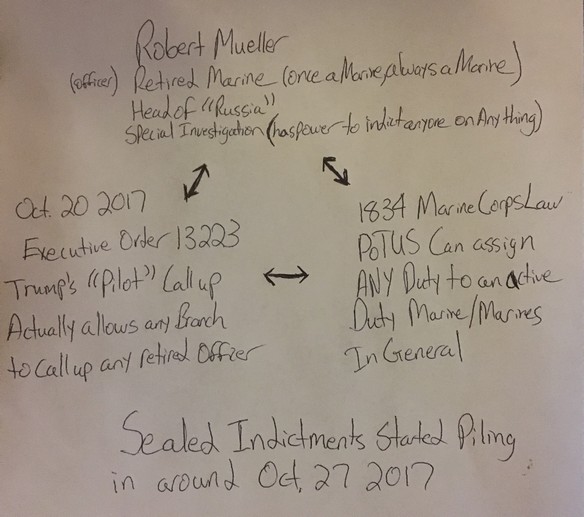 Robert Mueller
(officer) Retired Marine (once a Marine, always a Marine)
Head of "Russia"
Special Investigation (has power to indict anyone on Any thing)
Oct. 20 2017
Executive Order 13223
Trump's "Pilot" Call up
Actually allows any Branch
to call up any retired Officer
1834 Marine Corps Law
POTUS Can assign
ANY Duty to an active
Duty Marine/Marines
In General
Sealed Indictments Started Piling
in around Oct, 27 2017